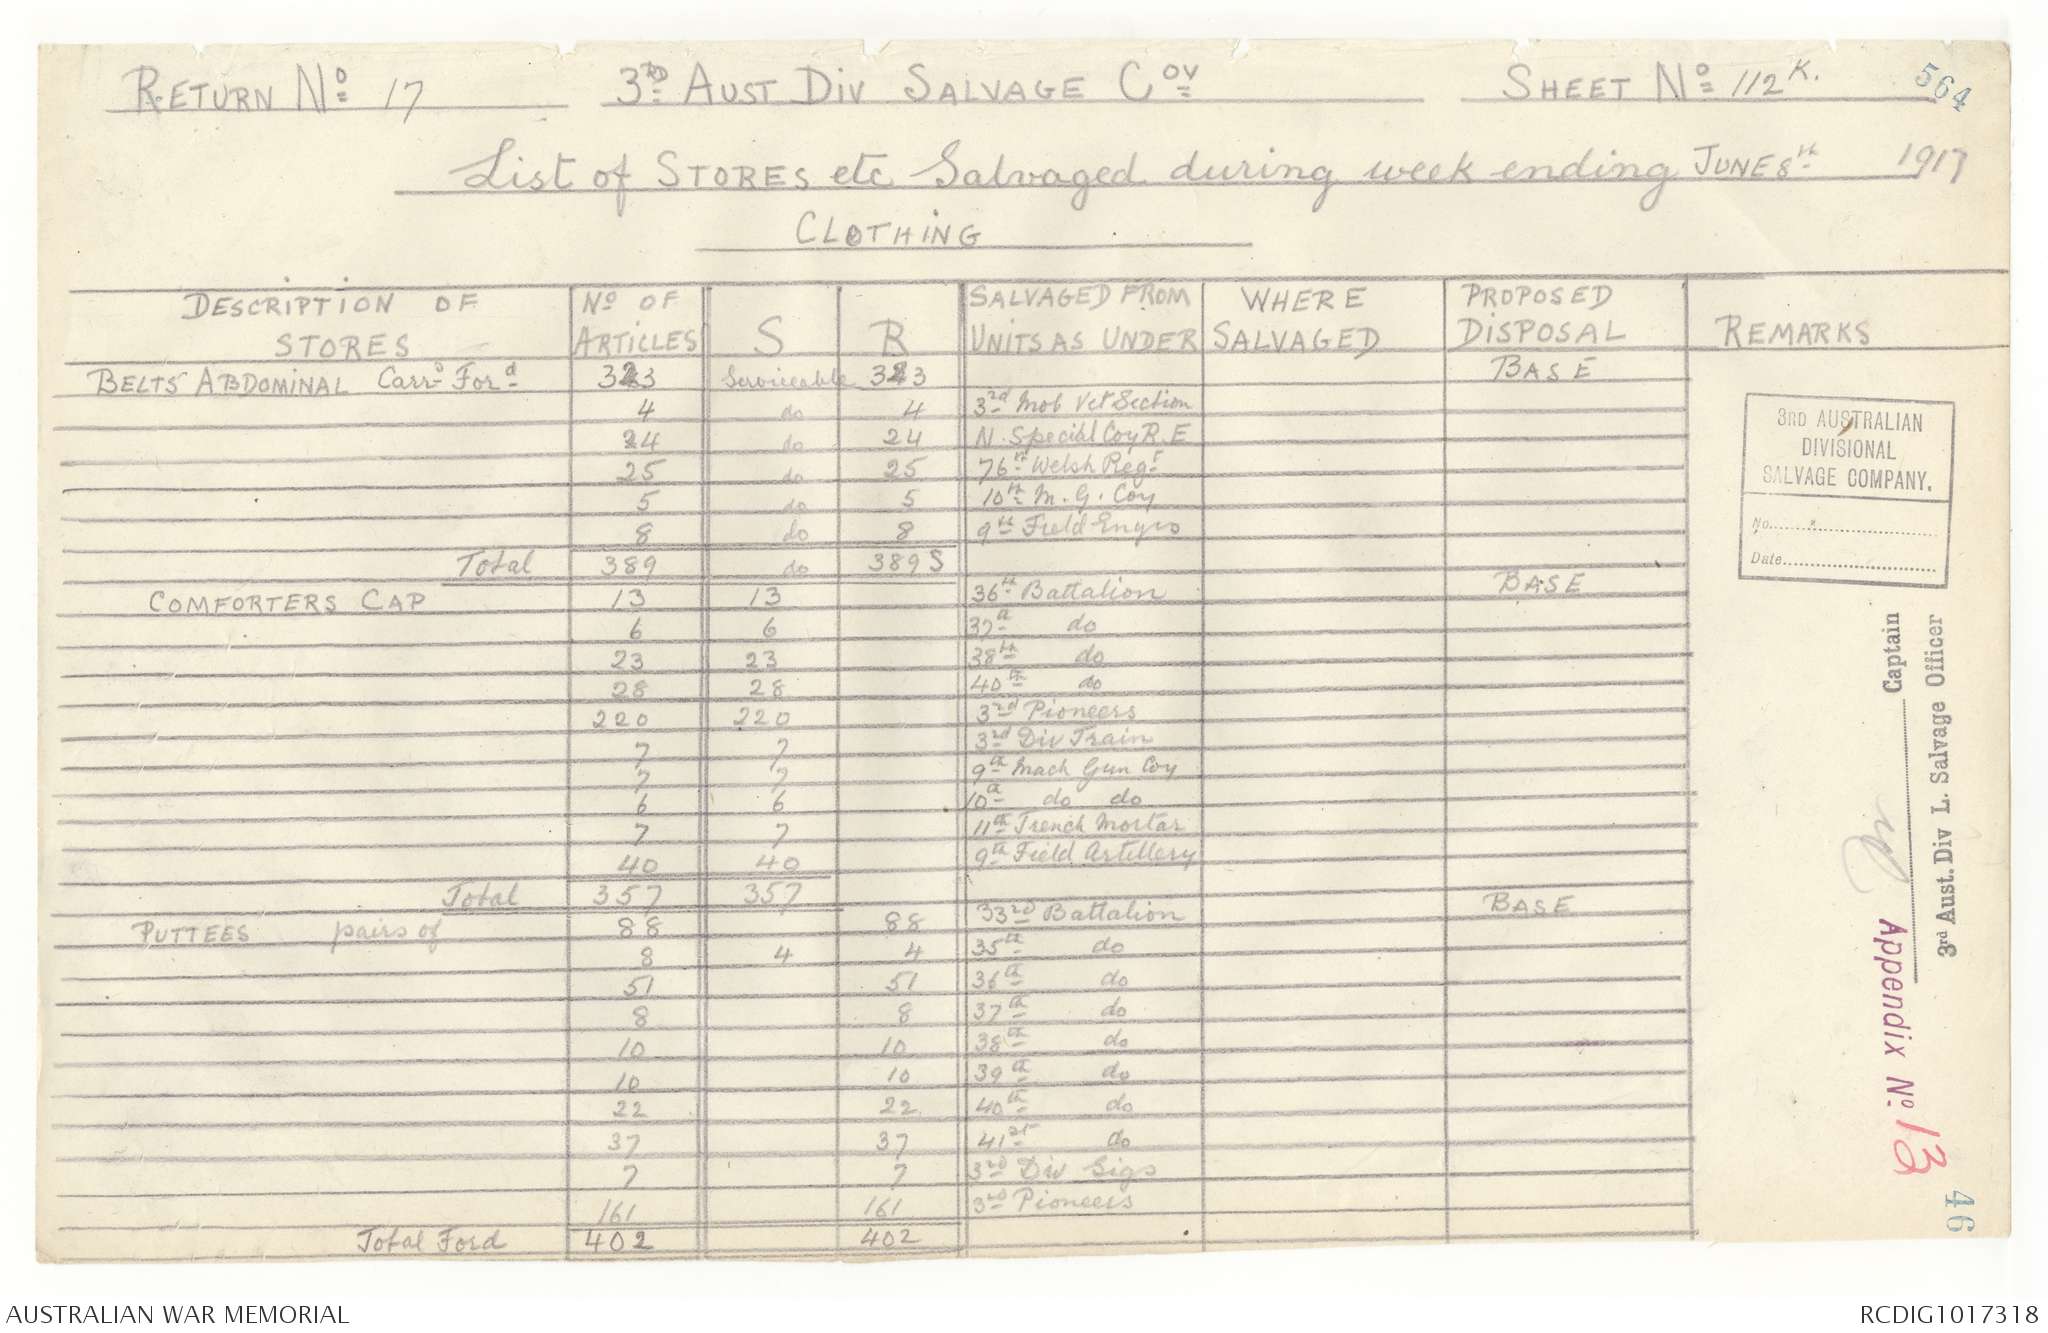 RETURN No 17 3RD AUST DIV SALVAGE COY SHEET No 112K. 564
List of STORES etc Salvaged during week ending JUNE 8th 1917
CLOTHING
DESCRIPTION OF STORES No OF ARTICLES S R SALVAGED FROM UNITS AS UNDER WHERE SALVAGED PROPOSED DISPOSAL REMARKS
BELTS ABDOMINAL Carrd Ford 323 Serviceable 323 BASE
4 do 4 3rd Mob Vet Section
24 do 24 N. Special Coy R.E
25 do 25 76th Welsh Regt
5 do 5 10th M. G. Coy
8 do 8 9th Field Engrs
Total 389 do 389 S
COMFORTERS CAP 13 13 36th Battalion BASE
6 6 37th do
23 23 38th do
28 28 40th do
220 220 3rd Pioneers
7 7 3rd Div Train
7 7 9th Mach Gun Coy
6 6 10th do do
7 7 11th Trench Mortar
40 40 9th Field Artillery
Total 357 357
PUTTEES pairs of 88 88 33rd Battalion BASE
8 4 4 35th do
51 51 36th do
8 8 37th do
10 10 38th do
10 10 39th do
22 22 40th do
37 37 41st do
7 7 3rd Div Sigs
161 161 3rd Pioneers
Total Ford 402 402
3RD AUSTRALIAN
DIVISIONAL
SALVAGE COMPANY.
No.
Date
Captain
3rd Aust. Div L. Salvage Officer
Appendix No. 13
46
AUSTRALIAN WAR MEMORIAL RCDIG1017318